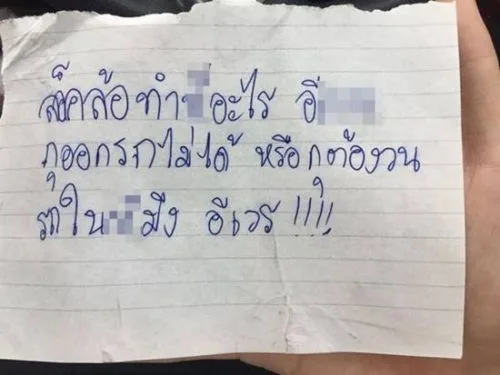 ล็คล้อทำ อะไร อี
กูออกรถไม่ได้ หรือกูต้องวน
รถใน มึง อีเวร !!!!